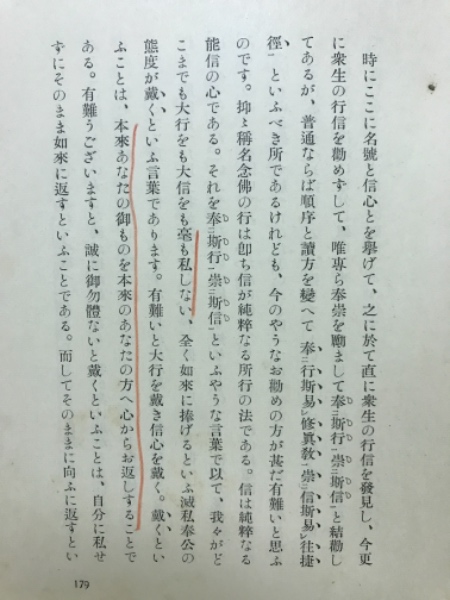 時にここに名號と信心とを擧げて、之に於て直に衆生の行信を發見し、今更
に衆生の行信を勸めずして、唯專ら奉崇を勵まして奉㆓斯行㆒崇㆓斯信㆒と結勸し
てあるが、普通ならば順序と讀方を變へて 奉㆓行斯易㆒修眞敎㆒崇㆓信斯易㆒往捷
徑㆒といふべき所であるけれども、今のやうなお勸めの方が甚だ有難いと思ふ
のです。抑〻稱名念佛の行は卽ち信が純粹なる所行の法である。信は純粹なる
能信の心である。それを奉㆓斯行㆒崇㆓斯信㆒といふやうな言葉で以て、我々がど
こまでも大行をも大信をも毫も私しない、全く如來に捧げるといふ滅私奉公の
態度が戴くといふ言葉であります。有難いと大行を戴き信心を戴く。戴くとい
ふことは、本來あなたの御ものを本來のあなたの方へ心からお返しすることで
ある。有難うございますと、誠に御勿體ないと戴くといふことは、自分に私せ
ずにそのまま如來に返すといふことである。而してそのままに向ふに返すとい
179